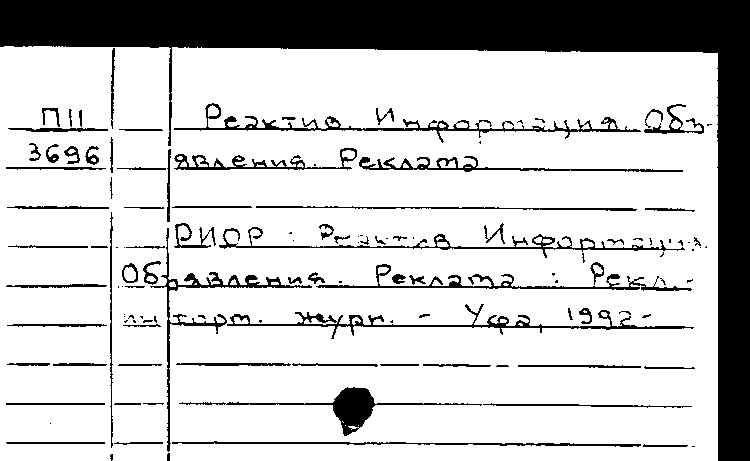 П11 Реактив. Информация. Объ-
3696 явления. Реклама
РИОР : Реактив. Информация.
Объявления. Реклама : Рекл.-
информ. журн. - Уфа, 1992-